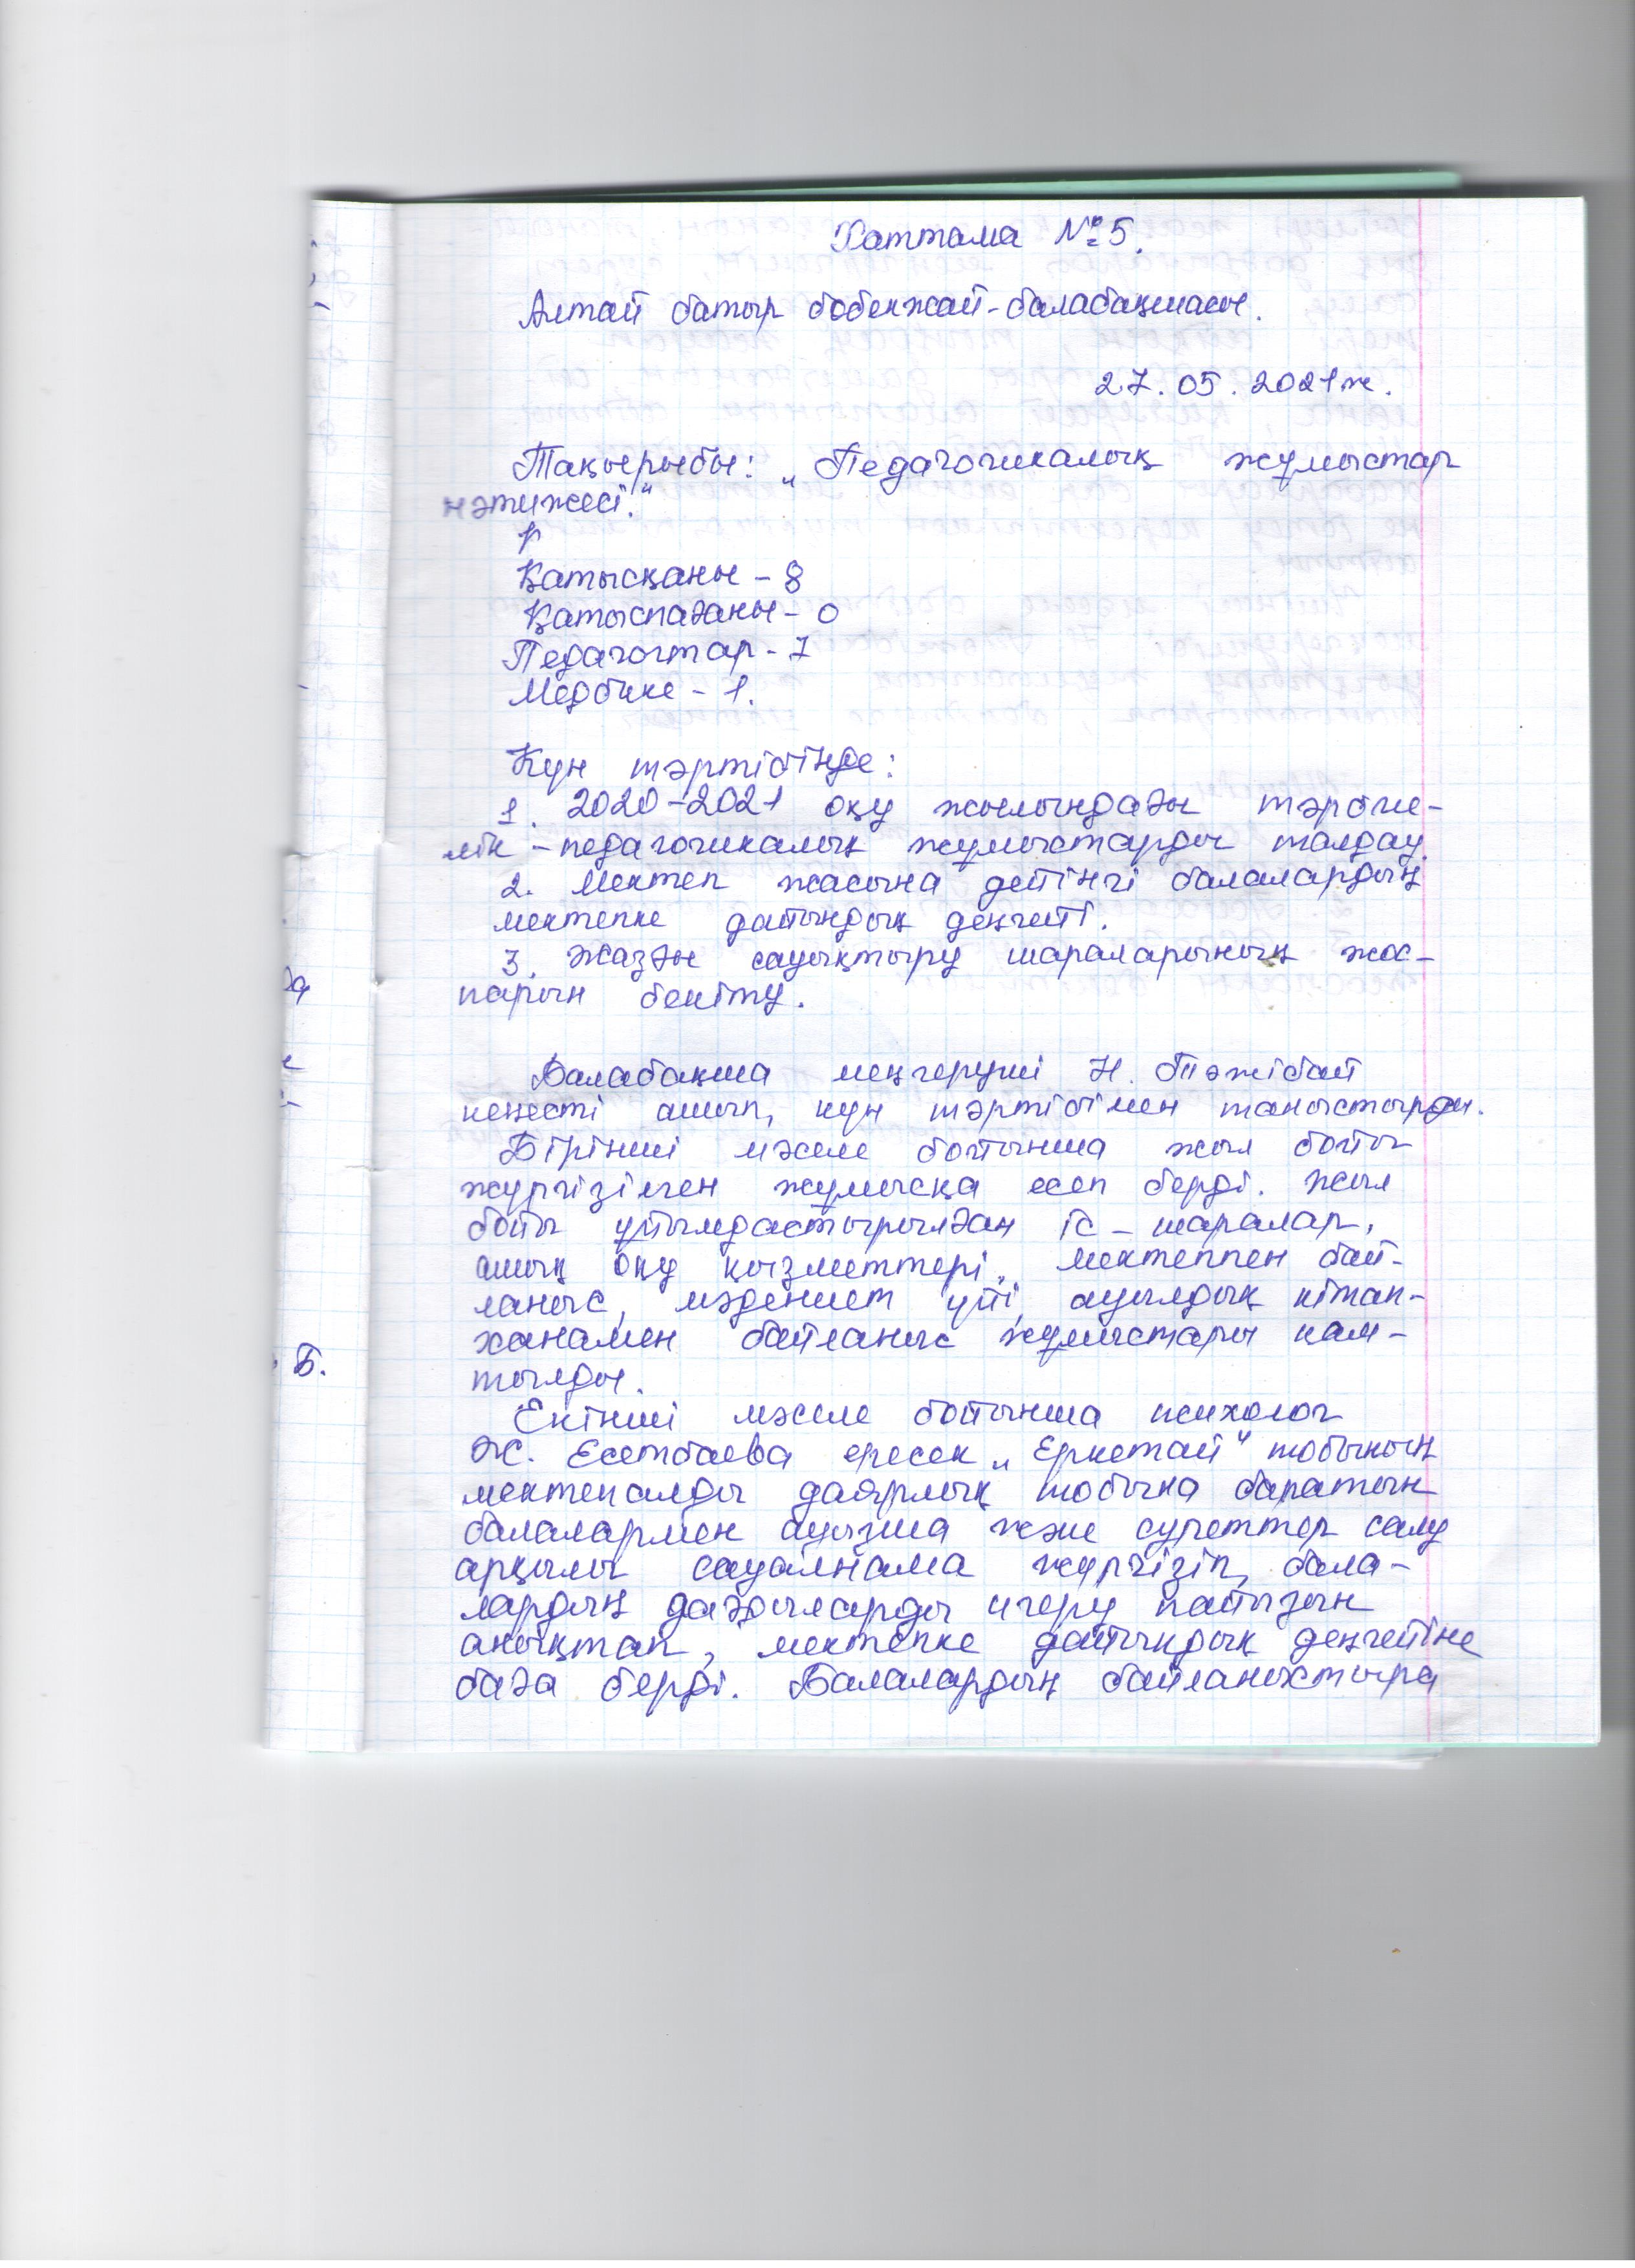 Хаттама №5.
Алтай батыр бөбекжай-балабақшасы.
27.05.2021ж.
Тақырыбы: „Педагогикалық жұмыстар
нәтижесі."
Қатысқаны - 8
Қатыспағаны - 0
Педагогтар - 7
Медбике - 1.
Күн тәртібінде:
1. 2020-2021 оқу жылындағы тәрбие-
лік-педагогикалық жұмыстарды талдау.
2. Мектеп жасына дейінгі балалардың
мектепке дайындық деңгейі.
3. Жазғы сауықтыру шараларының жос-
парын бекіту.
Балабақша меңгеруші Н. Тәжібай
кеңесті ашып, күн тәртібімен таныстырды.
Бірінші мәселе бойынша жыл бойы
жүргізілген жұмысқа есеп берді. Жыл
бойы ұйымдастырылған іс-шаралар,
ашық оқу қызметтері, мектеппен бай-
ланыс, мәдениет үйі, ауылдық кітап-
ханамен байланыс жұмыстары қам-
тылды.
Екінші мәселе бойынша психолог
Ж. Есетбаева ересек „Еркетай" тобының
мектепалды даярлық тобына баратын
балалармен ауызша және суреттер салу
арқылы сауалнама жүргізіп, бала-
лардың дағдыларды игеру пайызын
анықтап, мектепке дайындық деңгейіне
баға берді. Балалардың байланыстыра
Б.